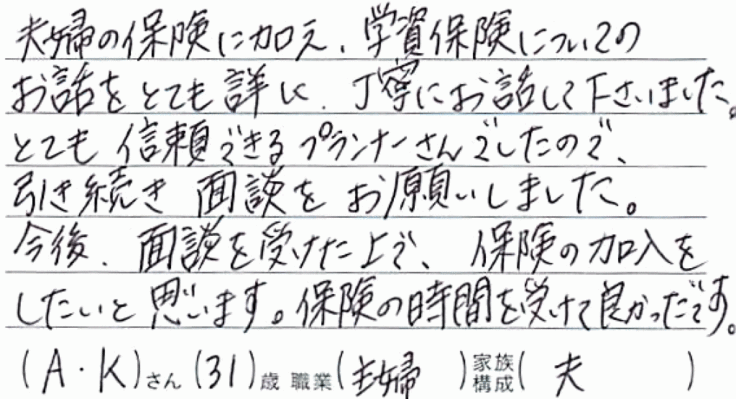 夫婦の保険に加え、学資保険についての
お話をとても詳しく、丁寧にお話して下さいました。
とても信頼できるプランナーさんでしたので、
引き続き面談をお願いしました。
今後、面談を受けた上で、保険の加入を
したいと思います。保険の時間を受けて良かったです。
(A・K)さん(31)歳 職業(主婦)家族構成(夫)